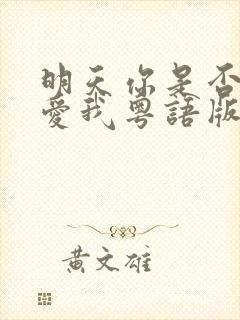 明天你是否
愛我粵語版
黃文雄